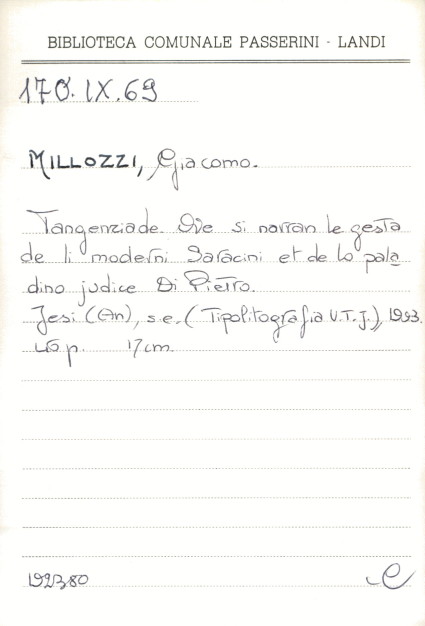 BIBLIOTECA COMUNALE PASSERINI - LANDI
170. IX. 69
MILLOZZI, Giacomo.
Tangenziade. Ove si narran le gesta
de li moderni Saracini et de lo pala
dino judice Di Pietro.
Jesi (An), s.e. (Tipolitografia U.T.J.), 1993.
46 p. 17 cm.
192380